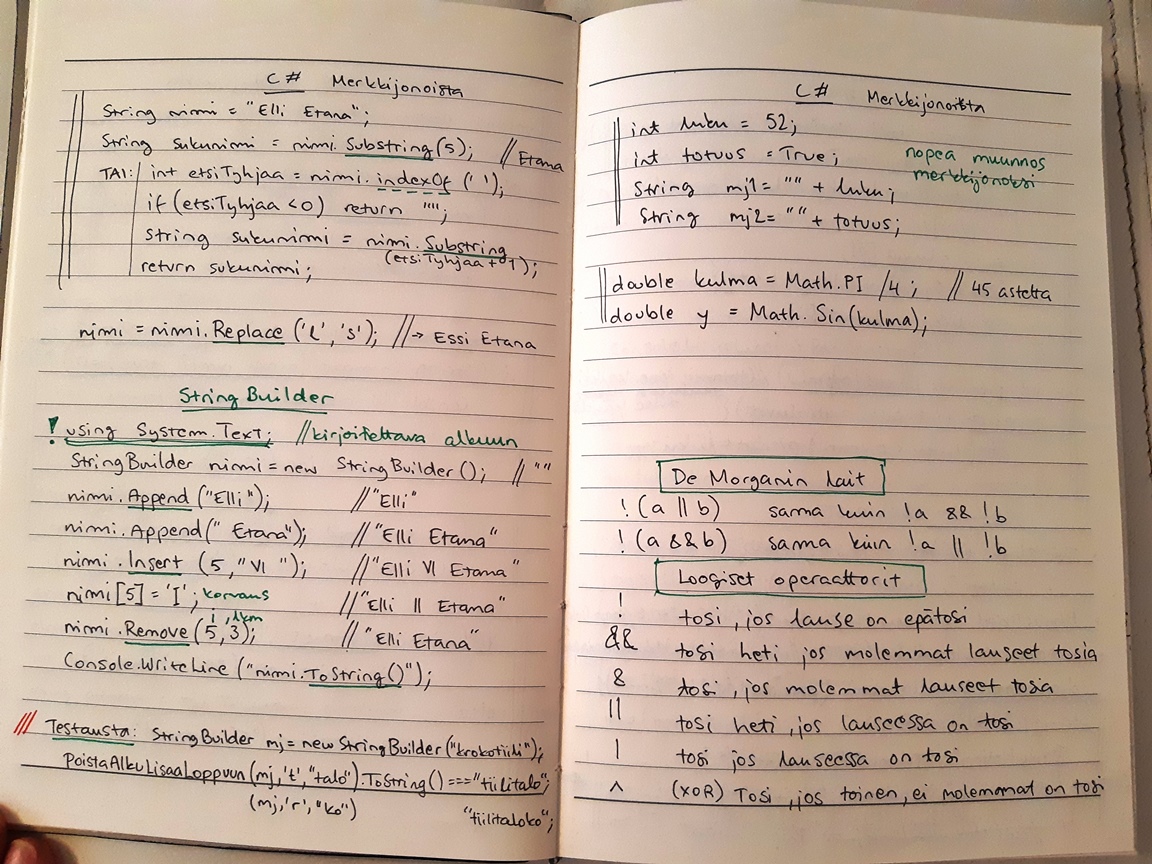 C# Merkkijonoista
String nimi = "Elli Etana";
String sukunimi = nimi.Substring(5); // Etana
TAI: int etsiTyhjaa = nimi.indexOf (' ');
if (etsiTyhjaa <0) return "";
string sukunimi = nimi.Substring
(etsiTyhjaa + 1);
return sukunimi;
nimi = nimi.Replace ('l', 's'); //→ Essi Etana
String Builder
! using System.Text; //kirjoitettava alkuun
StringBuilder nimi = new StringBuilder(); // ""
nimi.Append ("Elli"); //"Elli"
nimi.Append(" Etana"); //"Elli Etana"
nimi.Insert (5,"VI "); //"Elli VI Etana"
nimi[5] = 'I'; korvaus //"Elli II Etana"
i, lkm
nimi.Remove (5,3); // "Elli Etana"
Console.WriteLine ("nimi.ToString()");
/// Testausta: StringBuilder mj = new StringBuilder("krokotiili");
PoistaAlkuLisaaLoppuun (mj,'t',"talo").ToString() === "tiilitalo";
(mj,'r',"ko") "tiilitaloko";
C# Merkkijonoista
int luku = 52;
int totuus = True; nopea muunnos
merkkijonoksi
String mj1 = "" + luku;
String mj2 = "" + totuus;
double kulma = Math.PI /4; // 45 astetta
double y = Math.Sin(kulma);
De Morganin lait
! (a || b) sama kuin !a && !b
! (a && b) sama kuin !a || !b
Loogiset operaattorit
! tosi, jos lause on epätosi
&& tosi heti jos molemmat lauseet tosia
& tosi, jos molemmat lauseet tosia
|| tosi heti, jos lauseessa on tosi
| tosi jos lauseessa on tosi
^ (XOR) Tosi, jos toinen, ei molemmat on tosi